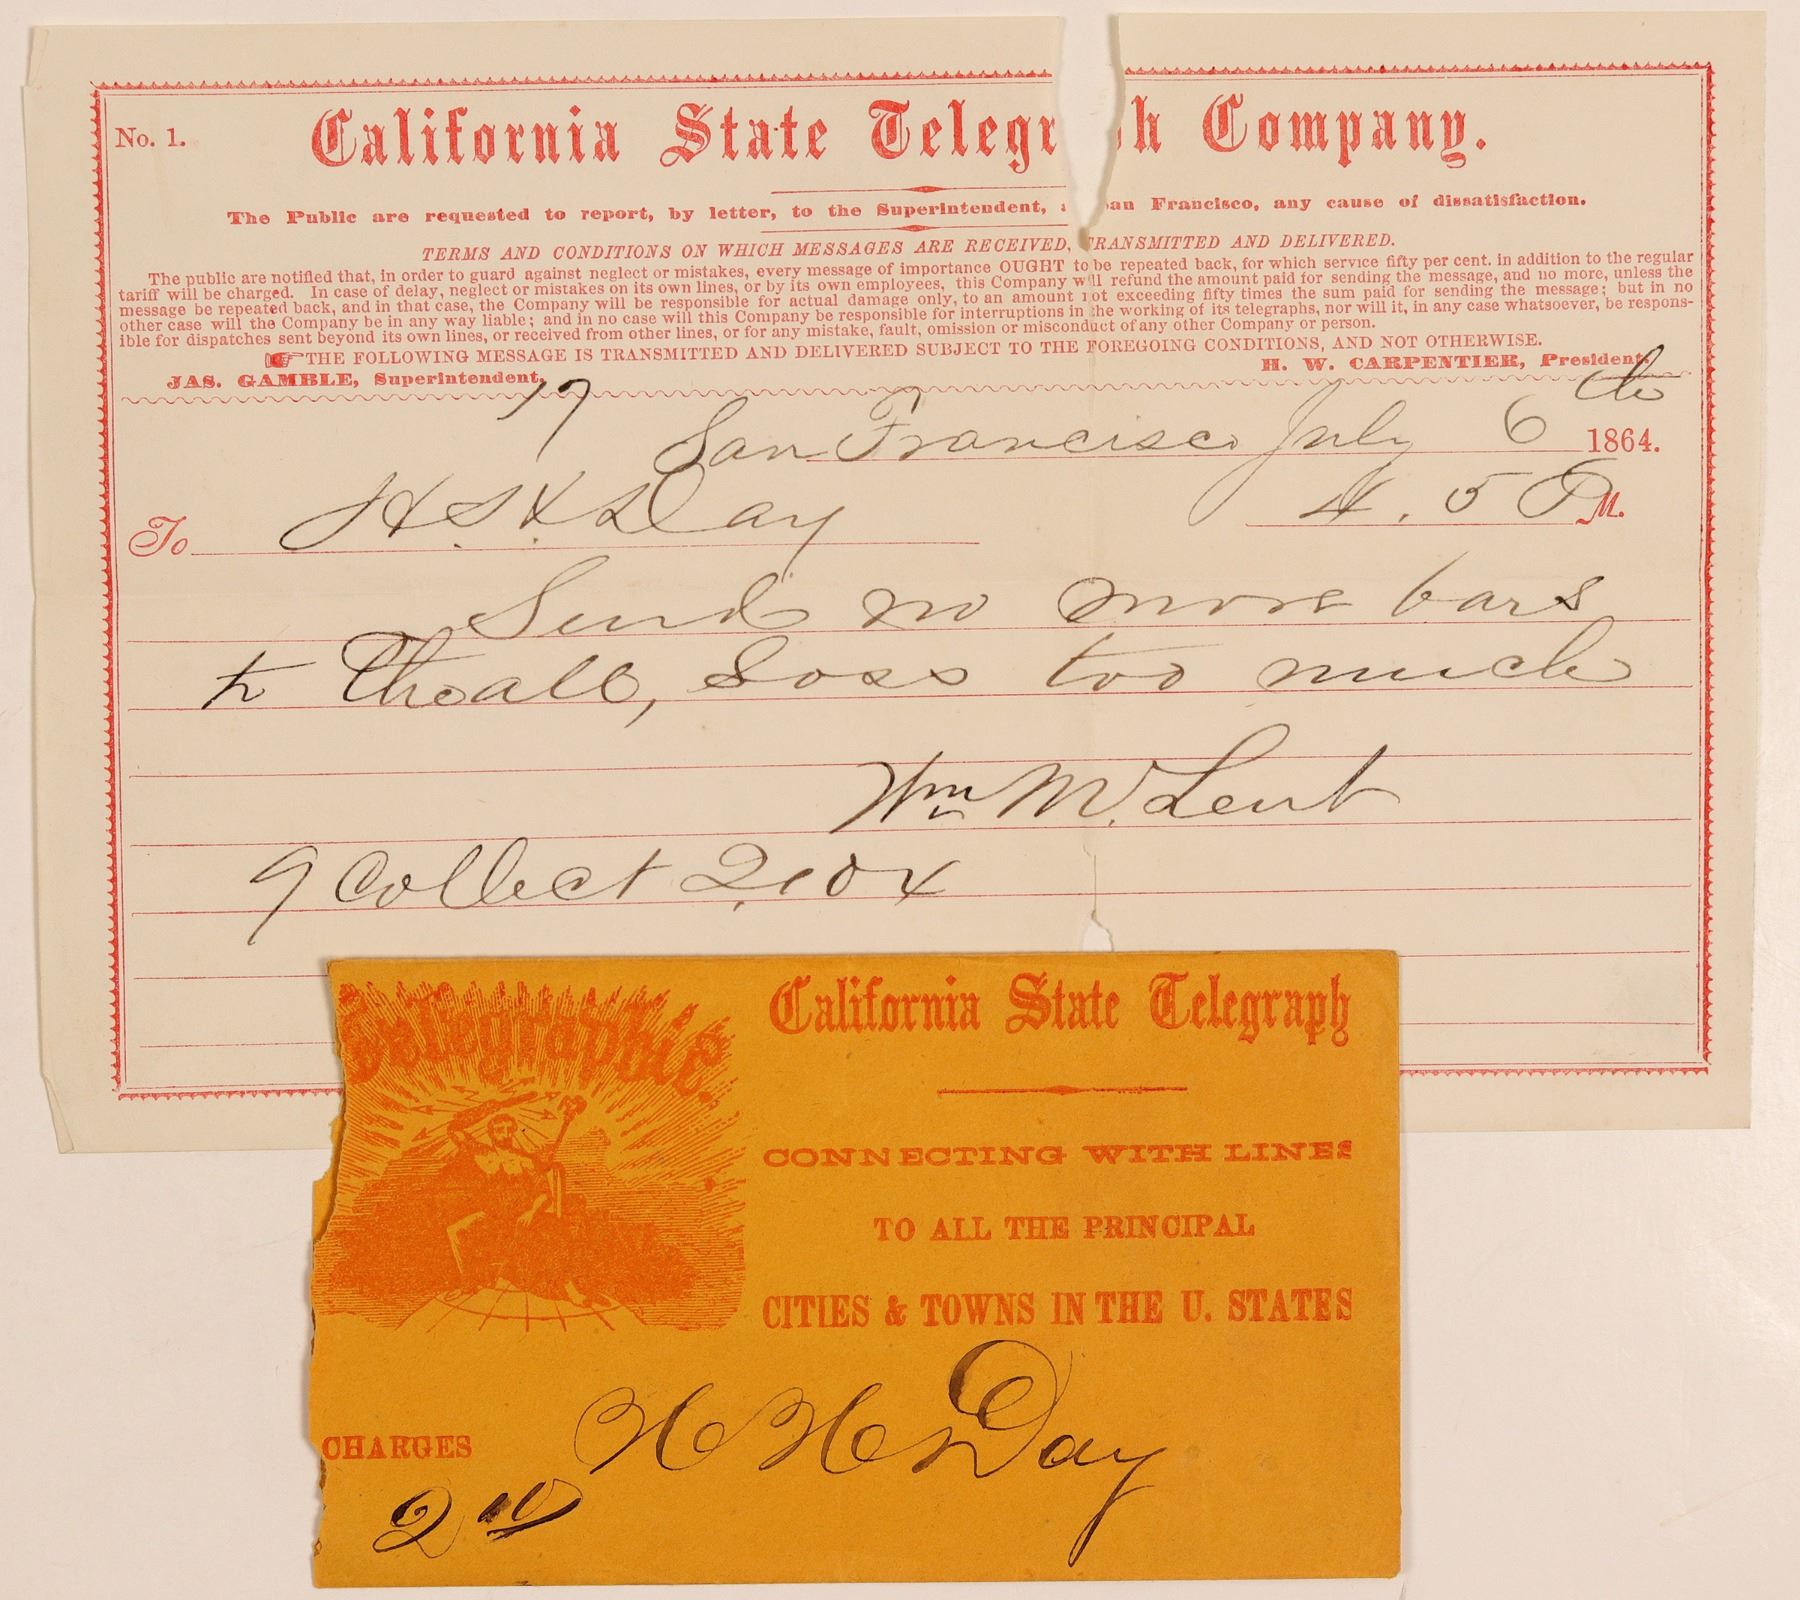 No. 1.
California State Telegr h Company.
The Public are requested to report, by letter, to the Superintendent, an Francisco, any cause of dissatisfaction.
TERMS AND CONDITIONS ON WHICH MESSAGES ARE RECEIVED, TRANSMITTED AND DELIVERED.
The public are notified that, in order to guard against neglect or mistakes, every message of importance OUGHT to be repeated back, for which service fifty per cent. in addition to the regular
tariff will be charged. In case of delay, neglect or mistakes on its own lines, or by its own employees, this Company will refund the amount paid for sending the message, and no more, unless the
message be repeated back, and in that case, the Company will be responsible for actual damage only, to an amount not exceeding fifty times the sum paid for sending the message; but in no
other case will the Company be in any way liable; and in no case will this Company be responsible for interruptions in the working of its telegraphs, nor will it, in any case whatsoever, be respons-
ible for dispatches sent beyond its own lines, or received from other lines, or for any mistake, fault, omission or misconduct of any other Company or person.
THE FOLLOWING MESSAGE IS TRANSMITTED AND DELIVERED SUBJECT TO THE FOREGOING CONDITIONS, AND NOT OTHERWISE.
JAS. GAMBLE, Superintendent. H. W. CARPENTIER, President.
17 San Francisco July 6 1864.
To Day 4.5 P M.
Send no more bars
to Theall, Loss too much
Wm M. Lent
9 Collect 2,
Telegraphic.
California State Telegraph
CONNECTING WITH LINES
TO ALL THE PRINCIPAL
CITIES & TOWNS IN THE U. STATES
H H Day
CHARGES
2